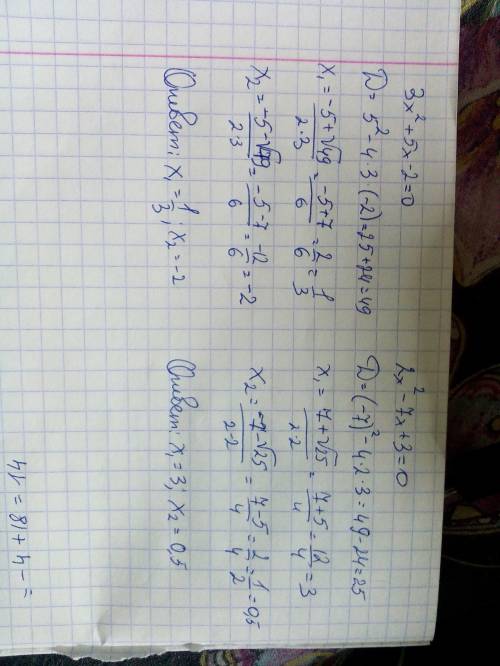 3x² + 5x - 2 = 0
D = 5² - 4 · 3 (-2) = 25 + 24 = 49
x₁ = (-5 + √49)/(2·3) = (-5 + 7)/6 = 2/6 = 1/3
x₂ = (-5 - √49)/(2·3) = (-5 - 7)/6 = -12/6 = -2
Ответ: x₁ = 1/3; x₂ = -2
2x² - 7x + 3 = 0
D = (-7)² - 4·2·3 = 49 - 24 = 25
x₁ = (7 + √25)/(2·2) = (7 + 5)/4 = 12/4 = 3
x₂ = (7 - √25)/(2·2) = (7 - 5)/4 = 2/4 = 1/2 = 0,5
Ответ: x₁ = 3; x₂ = 0,5
= -4 + 18 = 14